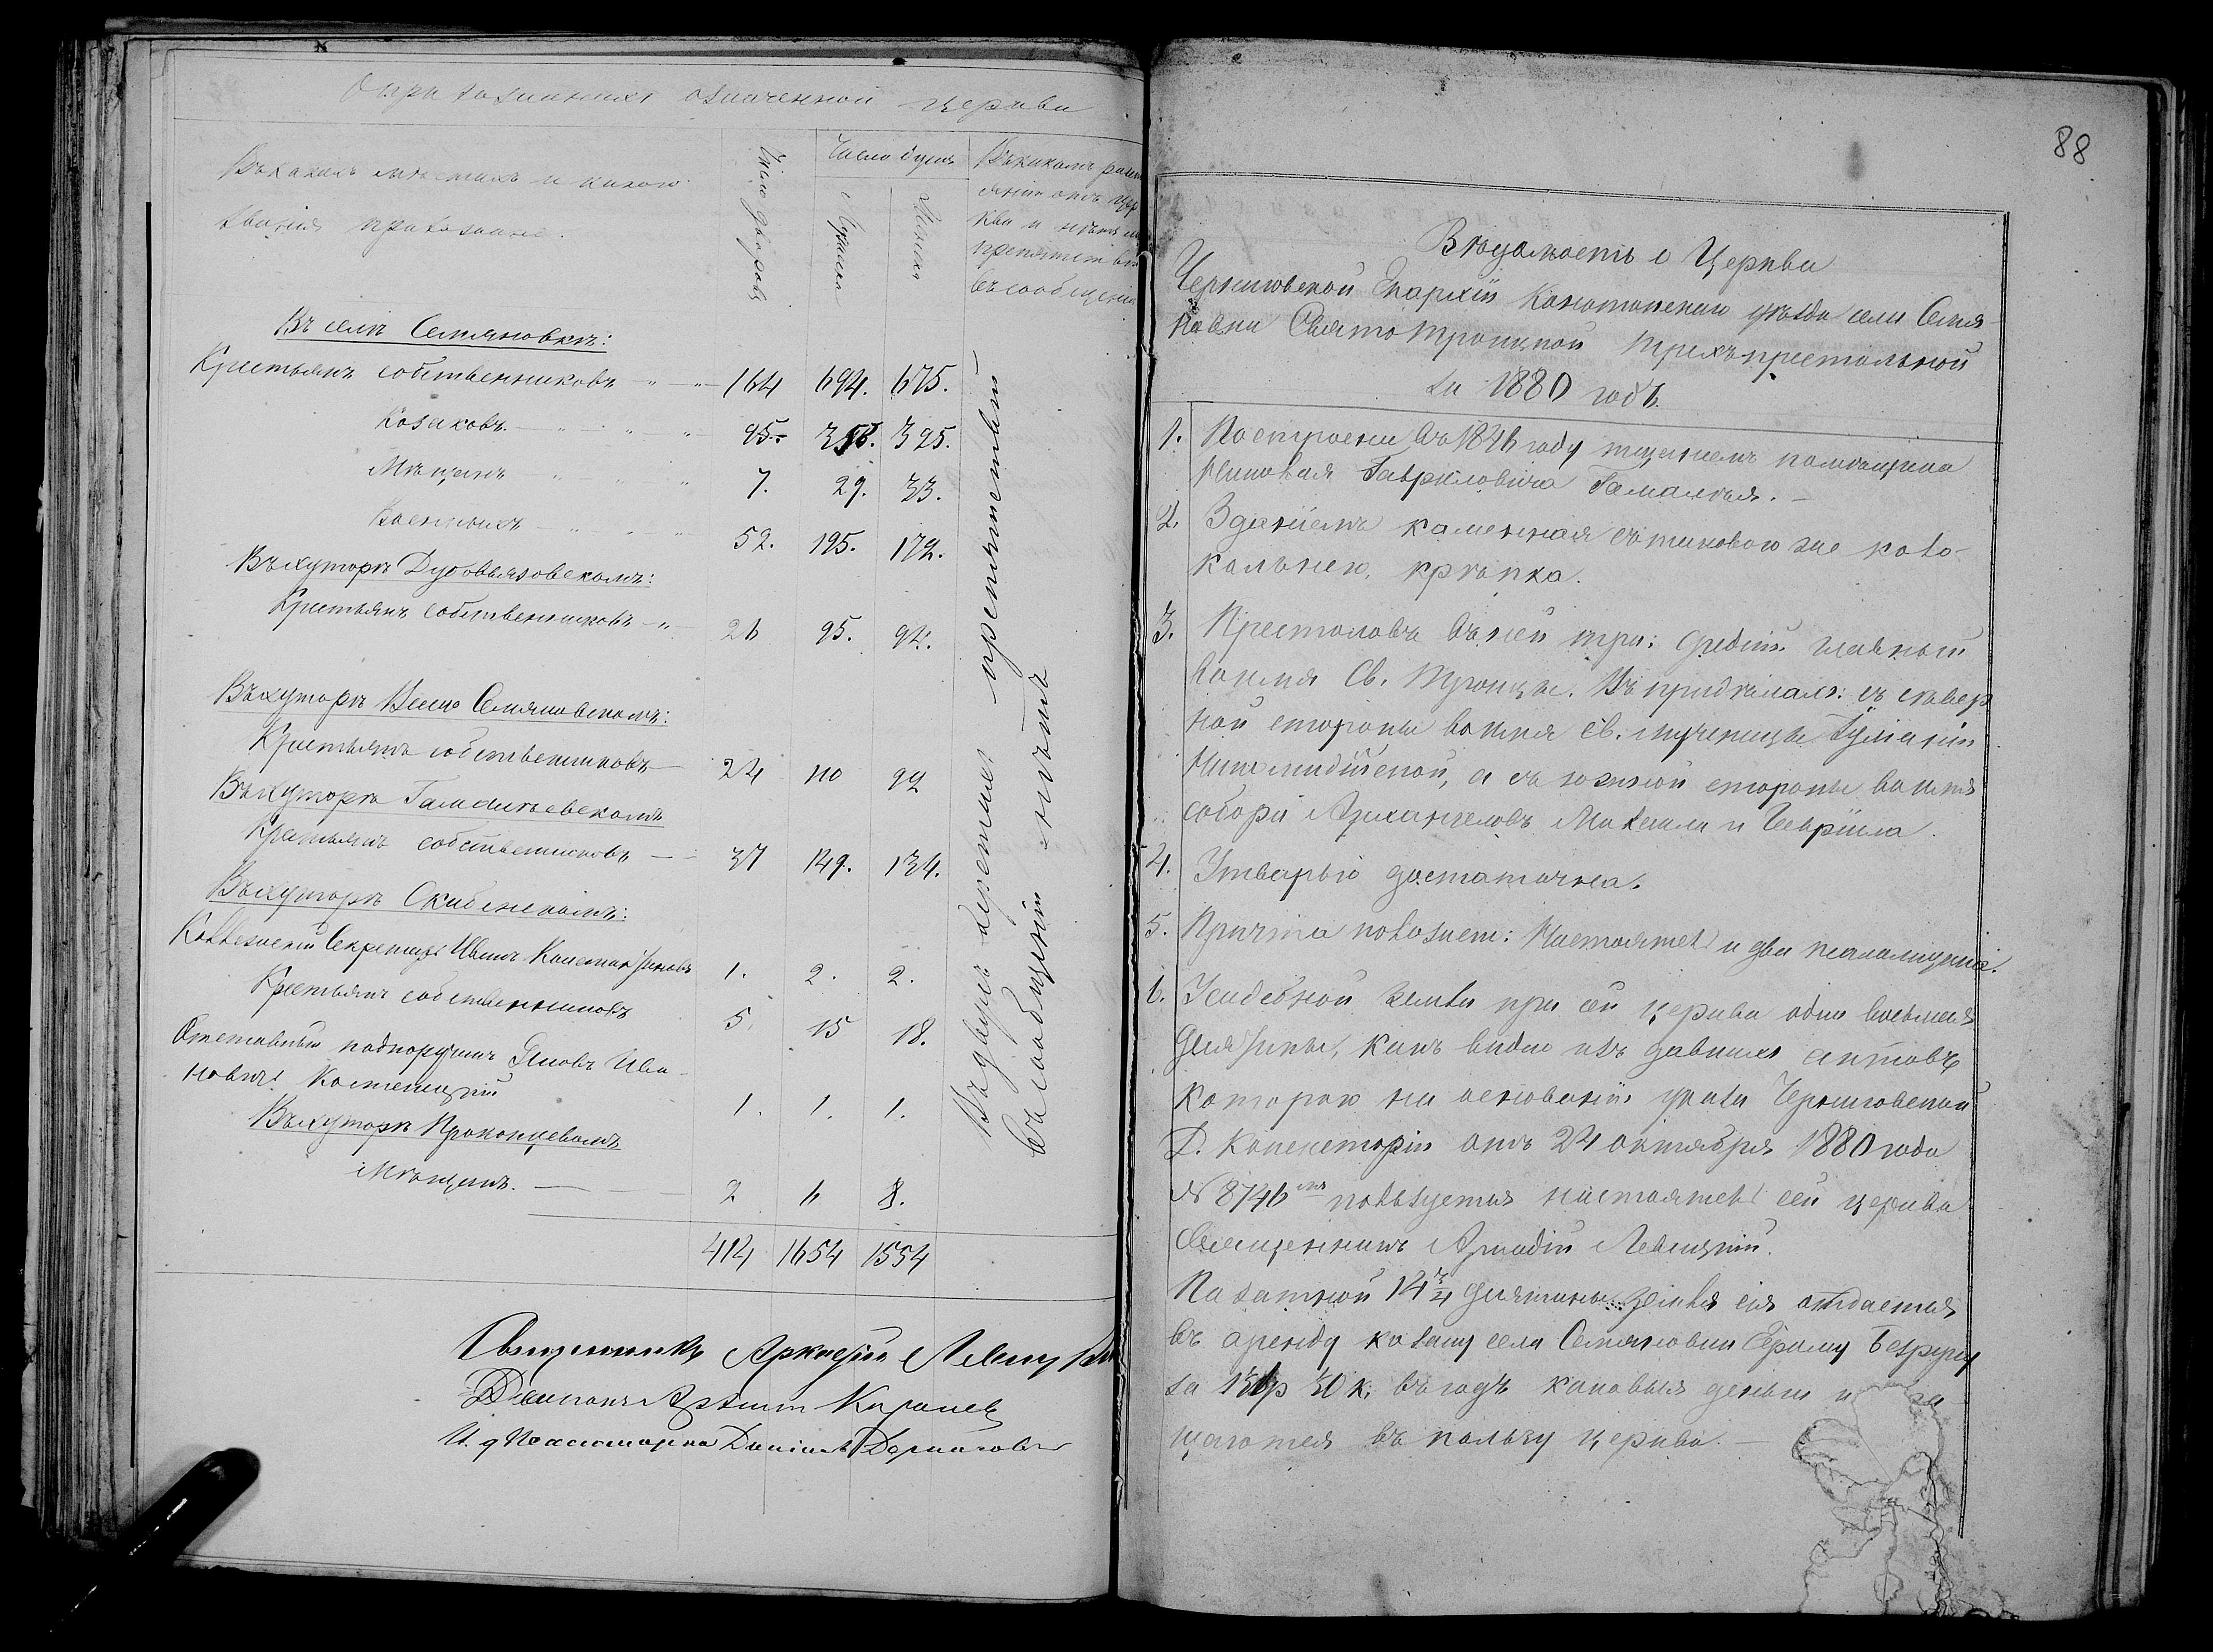 О прихожанахъ означенной церкви
Въ какихъ мѣстахъ и какого
званія прихожане.
Число дворовъ
Число душъ
Мужеска
Женска
Въ какомъ разст
ояніи отъ цер
кви и нѣтъ ли
препятствія
въ сообщеніи
Въ селѣ Семяновкѣ:
Крестьянъ собственниковъ 164 694. 675.
Козаковъ 95. 395.
Мѣщанъ 7. 29. 33.
Военныхъ 52. 195. 172.
Въ хуторѣ Дубовьязовскомъ:
Крестьянъ собственниковъ 26 95. 94.
Въ хуторѣ Семяновскомъ:
Крестьянъ собственниковъ 24 110 92
Въ хуторѣ Гамалѣевскомъ
Крестьянъ собственниковъ 37 149. 134.
Въ хуторѣ Скибенскомъ:
Коллезскій Секретарь Иванъ Константиновъ 1. 2. 2.
Крестьянъ собственниковъ 5. 15 18.
Отставный подпоручикъ Яковъ Ива-
новичъ Костенецкій 1. 1. 1.
Въ хуторѣ Прокопцевомъ
Мѣщанъ. 2 6 8.
414 1654 1554
Въ двухъ верстахъ препятствій
въ сообщеніи нѣтъ
Священникъ Аркадій Левицкій
Діаконъ Каранев
И. д. Псаломщика Даніилъ
88
Вѣдомость о Церкви
Черниговской Епархіи Конотопскаго уѣзда села Семя-
новки Свято Троицкой трехъ-престольной
за 1880 годъ.
1. Построена въ 1826 году тщаніемъ помѣщика
Михаила Гавриловича Гамалѣя.
2. Зданіемъ каменная съ таковою же коло-
кольнею, крѣпка.
3. Престоловъ въ ней три: средній главный
во имя Св. Троицы. Въ придѣлахъ: съ сѣвер
ной стороны во имя св. мученицы Іуліаніи
Никомидійской, а съ южной стороны во имя
собора Архангеловъ Михаила и Гавріила.
4. Утварью достаточна.
5. Причта положено: Настоятель и два псаломщика.
6. Усадебной земли при сей церкви одна восьмая
десятины, какъ видно изъ давнихъ актовъ
которою на основаніи указа Черниговской
Д. Консисторіи отъ 24 октября 1880 года
№ 8746 пользуется настоятель сей церкви
Священникъ Аркадій Левицкій.
Пахатной 14 3/4 десятины земля сія отдается
въ аренду козаку села Семяновки
за 30 к. въ годъ каковыя деньги
щаются въ пользу церкви.